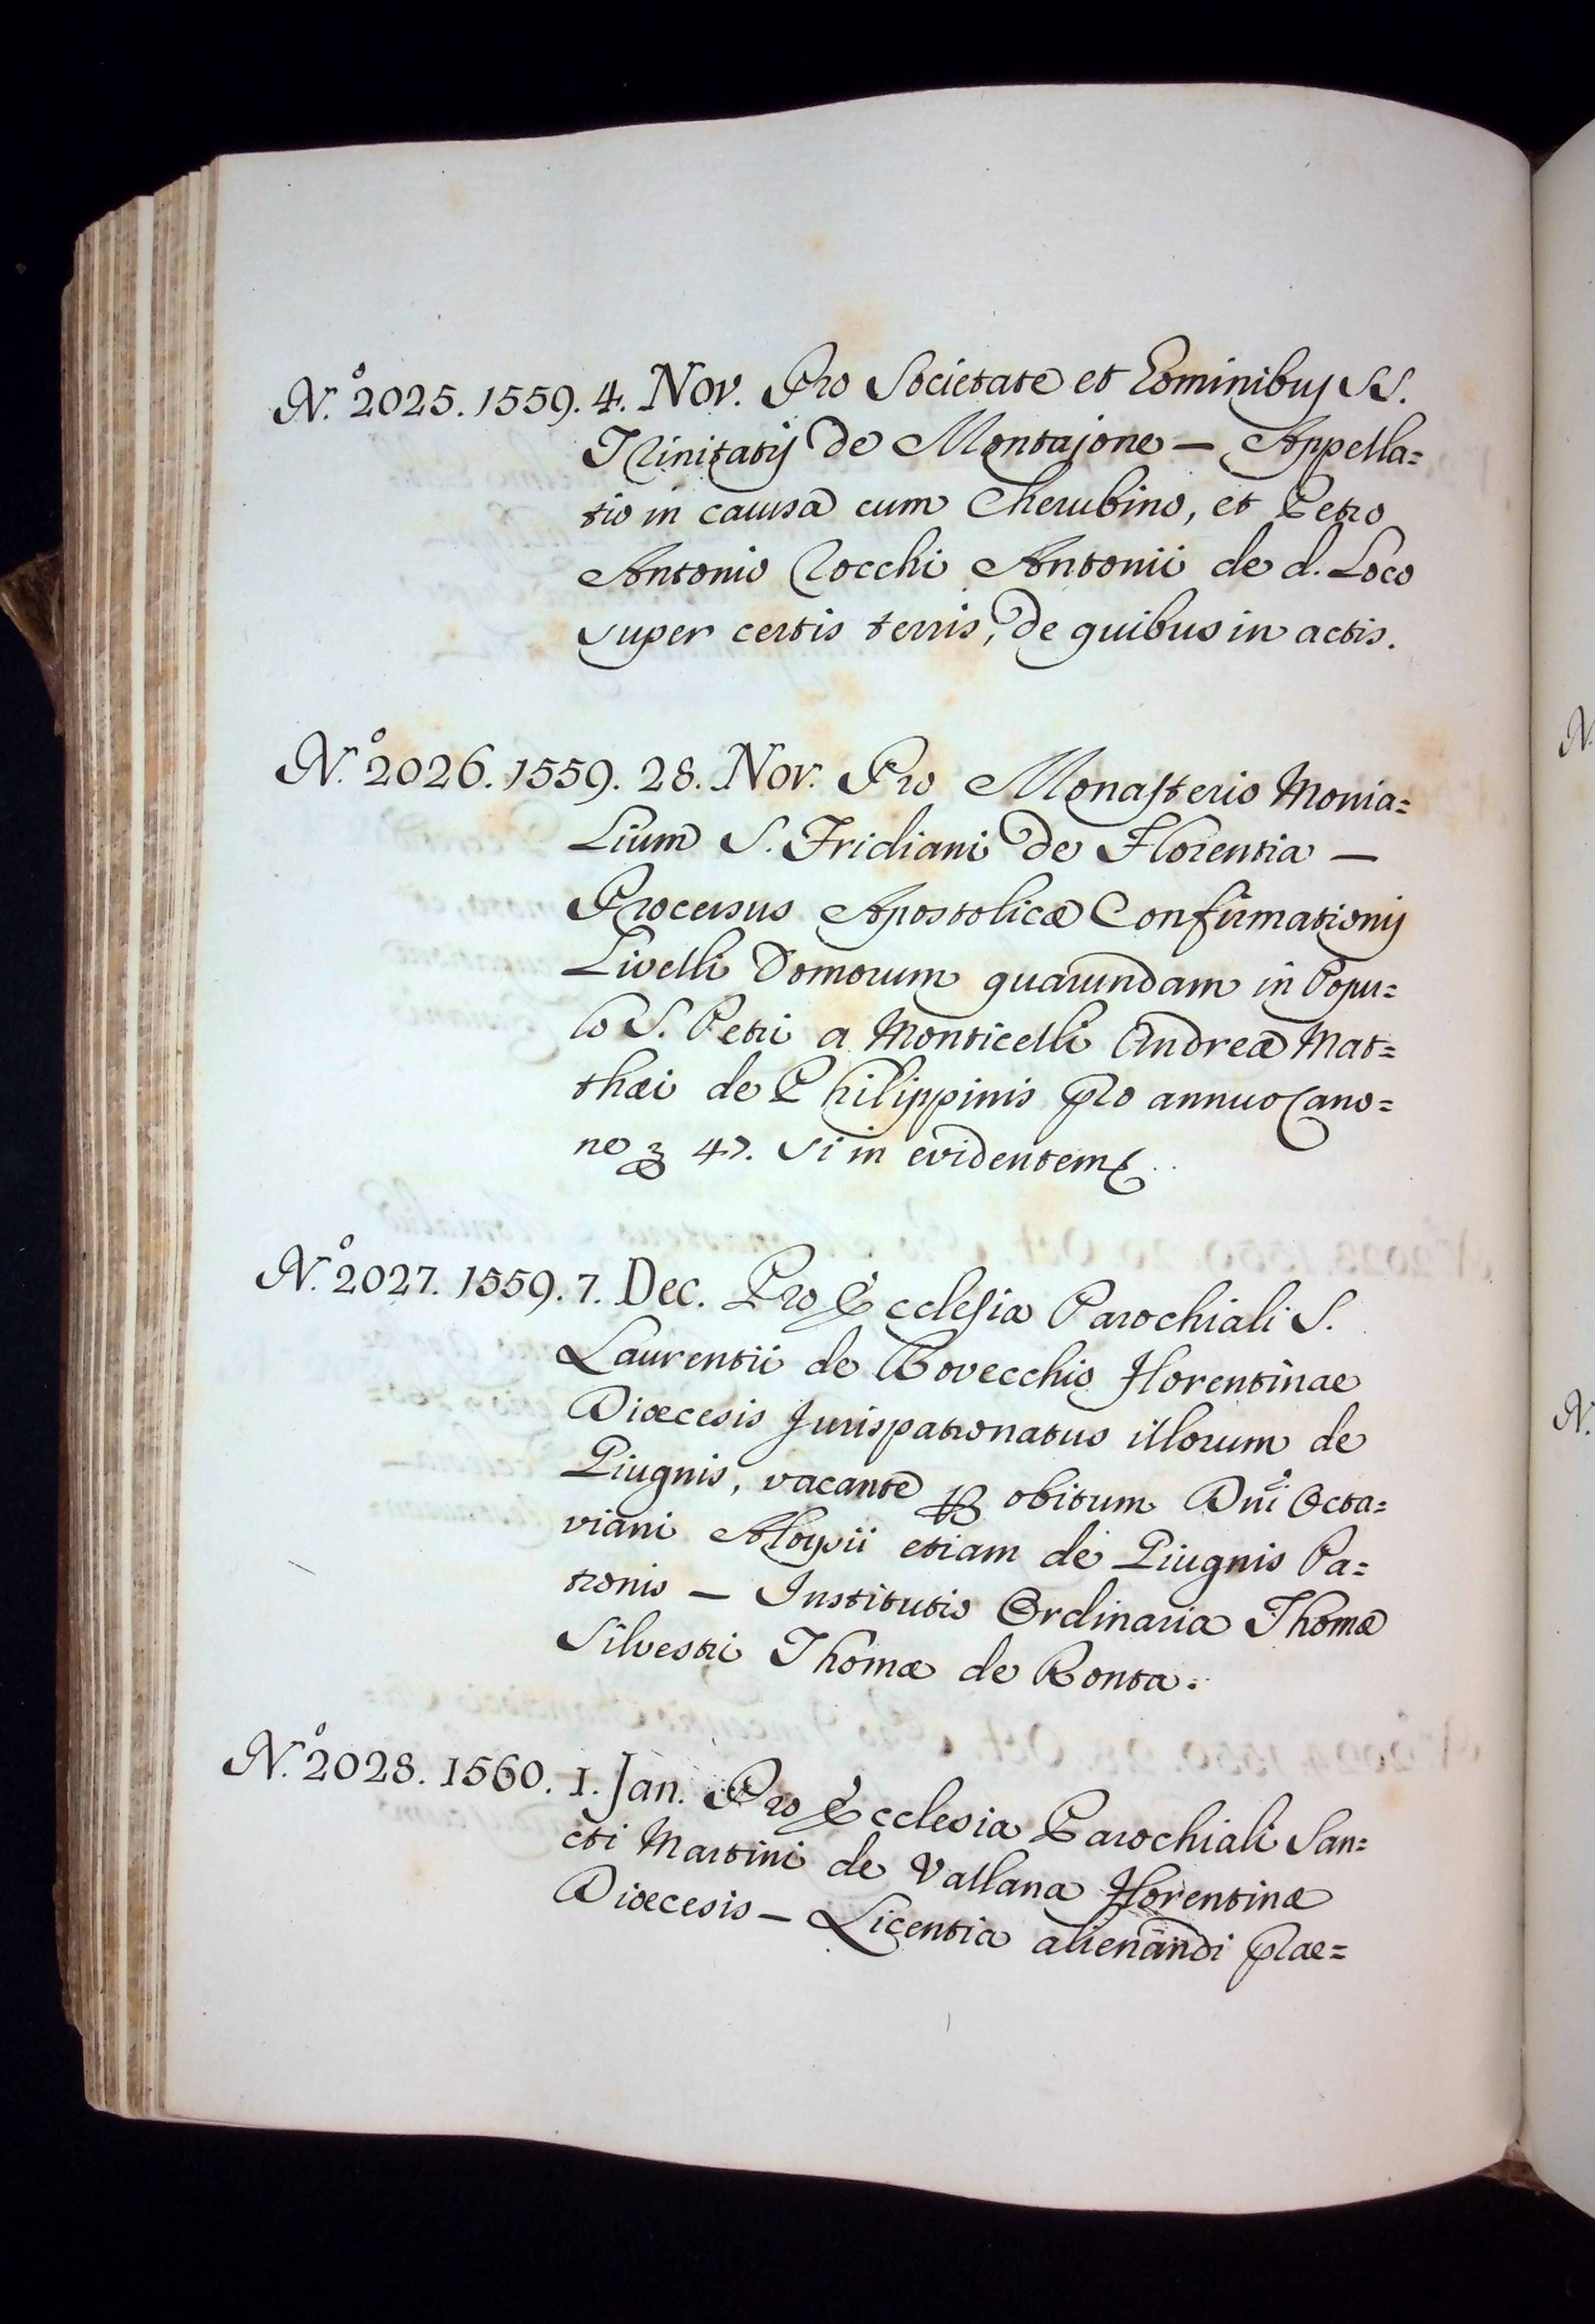 N.º 2025. 1559. 4. Nov. Pro Societate et Hominibus SS.
Trinitatis de Montajone — Appella=
tio in causa cum Cherubino, et Petro
Antonio Rocchi Antonii de d. Loco
super certis terris, de quibus in actis.
N.º 2026. 1559. 28. Nov. Pro Monasterio Monia=
lium S. Fridiani de Florentia —
Processus Apostolicæ Confirmationis
Livelli Domorum quarundam in Popu=
lo S. Petri a Monticelli Andreæ Mat=
thæi de Philippinis pro annuo Cano=
ne 47. Si in evidentem
N.º 2027. 1559. 7. Dec. Pro Ecclesia Parochiali S.
Laurentii de Bovecchio Florentinae
Diœcesis Jurispatronatus illorum de
Piugnis, vacante ꝑ obitum Dñi Octa=
viani Aloysii etiam de Piugnis Pa=
tronis — Institutio Ordinaria Thomæ
Silvestri Thomæ de Ronta.
N.º 2028. 1560. 1. Jan. Pro Ecclesia Parochiali San=
cti Martini de Vallana Florentinæ
Diœcesis — Licentia alienandi prae=
N.
N.